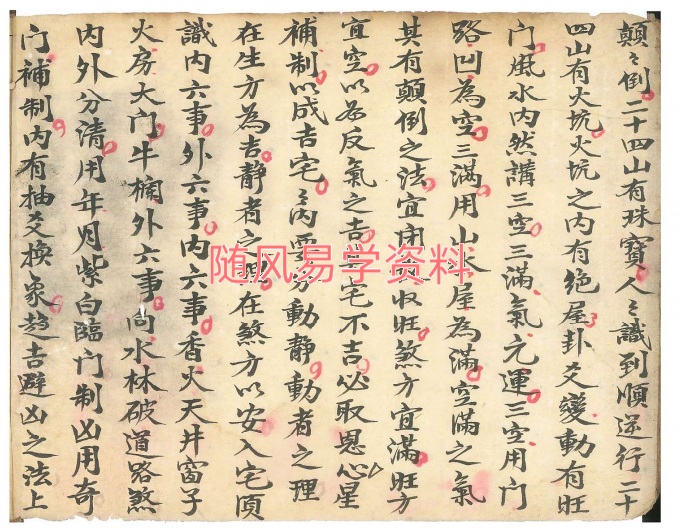 顛〻倒二十四山有珠寶人〻識到順逆行二十
四山有火坑火坑之內有絶屋卦爻變動有旺
门風水內然講三空三滿氣元運三空用门
路凹為空三滿用山水屋為滿空滿之氣
其有顛倒之法宜用收旺煞方宜滿旺方
宜空以為反氣之吉宅不吉必取恩心星
補制以成吉宅〻內要分動静動者之理
在生方為吉静者之理在煞方以安入宅須
識內六事外六事內六事香火天井窗子
火房大门牛欄外六事向水林破道路煞
內外分清用年月紫白臨门制凶用奇
门補制內有抽爻換象趋吉避凶之法上
随风易学资料